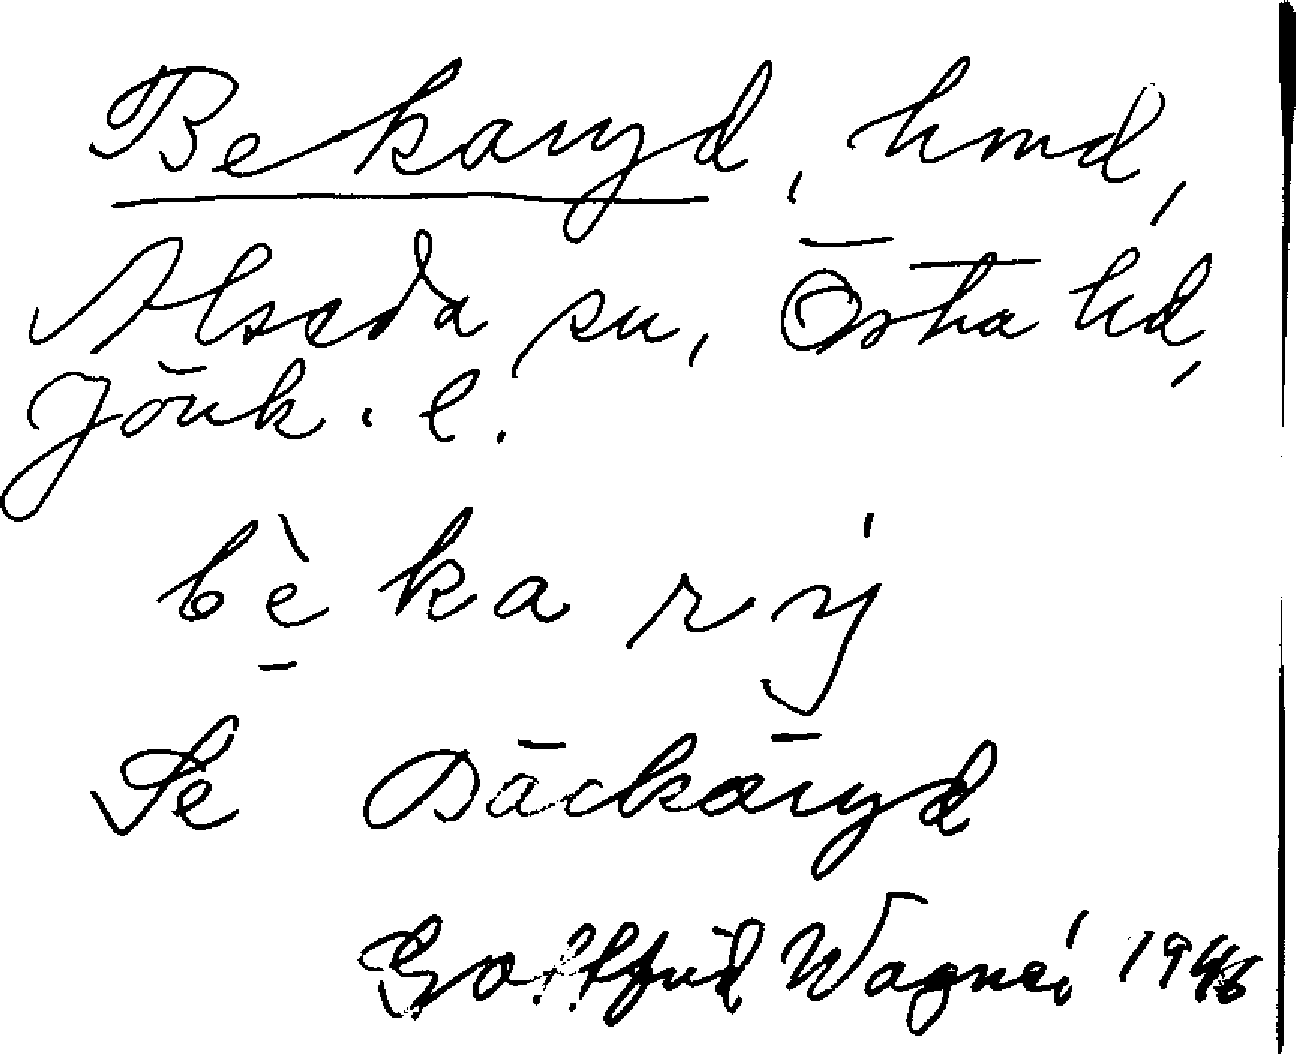 Bekaryd, hmd,
Alseda sn, Östra hd,
Jönk. l.
bèkarý
Se Bäckaryd
Gottfrid Wagnér 1946